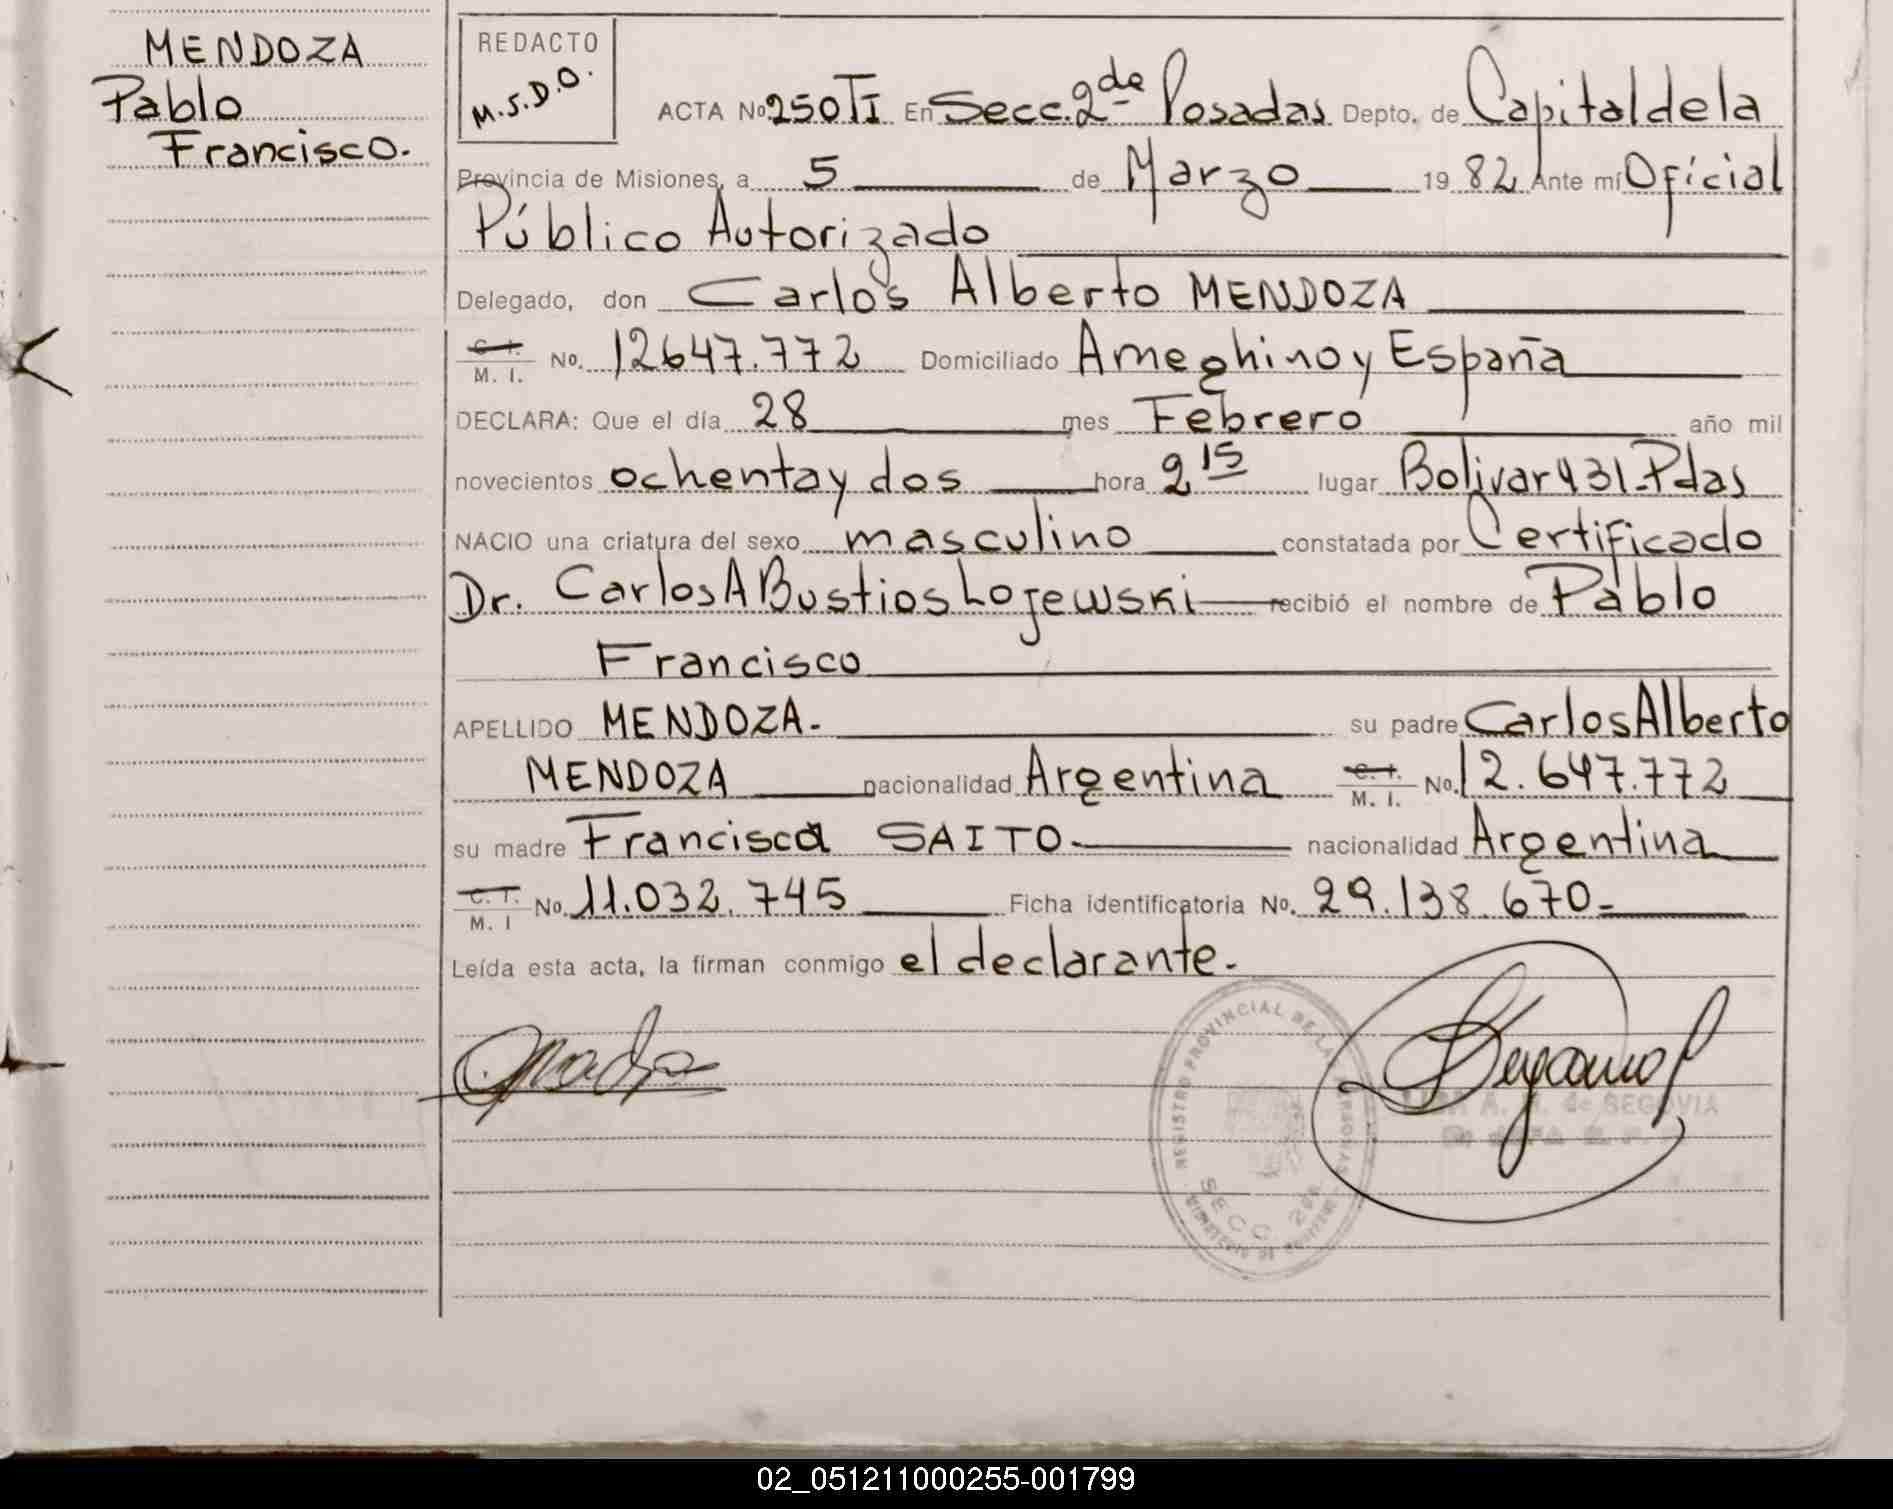 MENDOZA
Pablo
Francisco.
REDACTO
M.S.D.O.
ACTA No 250 TI En Secc. 2da Posadas Depto. de Capital de la
Provincia de Misiones, a 5 de Marzo 19 82 Ante mí Oficial
Público Autorizado
Delegado, don Carlos Alberto MENDOZA
C. I. M. I. No. 12647.772 Domiciliado Ameghino y España
DECLARA: Que el día 28 mes Febrero año mil
novecientos ochenta y dos hora 2 15 lugar Bolivar 431-Pdas
NACIO una criatura del sexo masculino constatada por Certificado
Dr. Carlos A Bustios Lojewski recibió el nombre de Pablo
Francisco
APELLIDO MENDOZA. su padre Carlos Alberto
MENDOZA nacionalidad Argentina C. I. M. I. No. 12.647.772
su madre Francisca SAITO nacionalidad Argentina
C. I. M. I No. 11.032.745 Ficha identificatoria No. 29.138.670-
Leída esta acta, la firman conmigo el declarante.
REGISTRO PROVINCIAL DE LAS PERSONAS
SECC 2da
A. de SEGOVIA
02_051211000255-001799